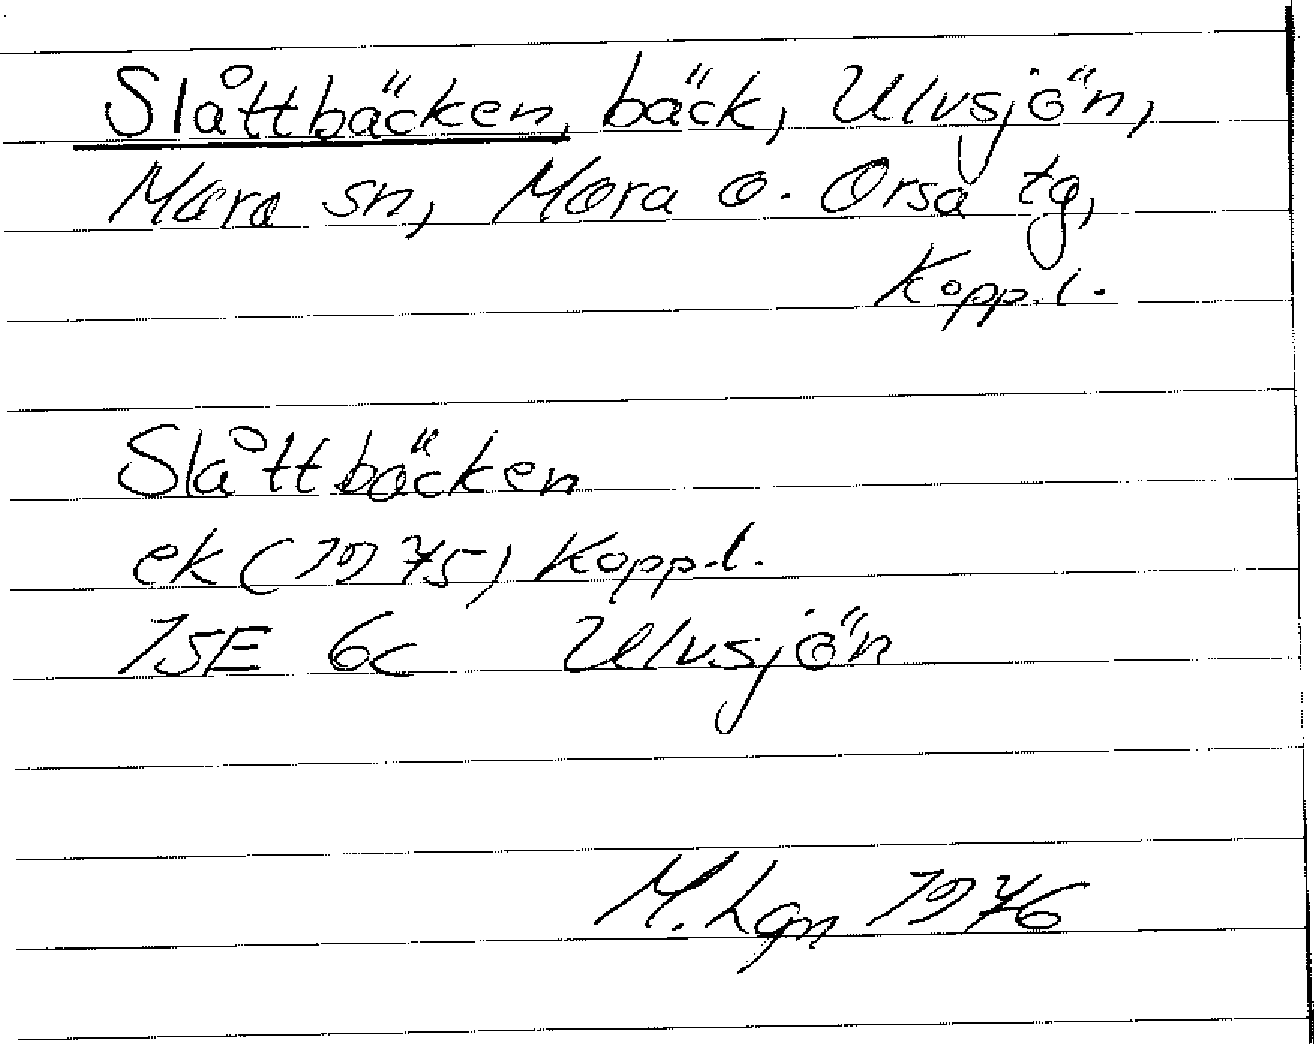 Slåttbäcken, bäck, Ulvsjön,
Mora sn, Mora o. Orsa tg,
Kopp. l.
Slåttbäcken
ek (1975) Kopp. l.
15E 6c Ulvsjön
M. Lgn 1976